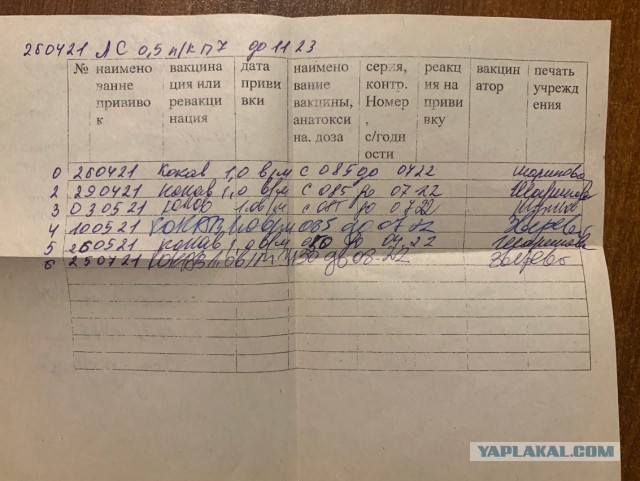 260421 ЛС 0,5 п/к п7 до 11 23
№ наимено вание прививо к
вакцина ция или ревакци нация
дата приви вки
наимено вание вакцины, анатокси на. доза
серия, контр. Номер , с/годн ости
реакц ия на приви вку
вакцин атор
печать учрежд ения
0 260421 Кокав 1,0 в/м с 085 до 0422 Шаринова
2 290421 Кокав 1,0 в/м с 085 до 0722
3 03.05 21 1.0 в/м с 085 до 0722
4 100521 КОКАВ 1,0 в/м 085 до 07 22 Зверева
5 260521 кокав 1,0 в/м 080 до 04,22
6 250721 КОКАВ 1,0 в/м до 08-22 Зверева
YAPLAKAL.COM